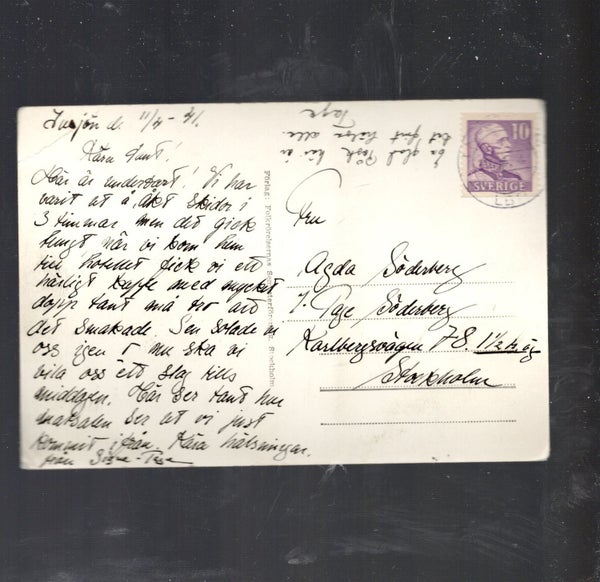 Insjön d. 11/4 - 41.
Kära tant!
Här är underbart! Vi har
varit ut å åkt skidor i
3 timmar, men det gick
tungt när vi kom hem
till hotellet fick vi ett
härligt kaffe med mycket
dopp tant må tro att
det smakade. Sen solade vi
oss igen o nu ska vi
vila oss ett slag tills
middagen. Här ser tant hur
matsalen ser ut vi just
kommit ifrån. Kära hälsningar
från
En glad Påsk här är
det fint hälsa alla.
Tage
Förlag: Folkrörelsernas Stockholm
10
SVERIGE
Fru
Agda Söderberg
Tage Söderberg
Karlbergsvägen 78. 1 1/2 tr. ög
Stockholm